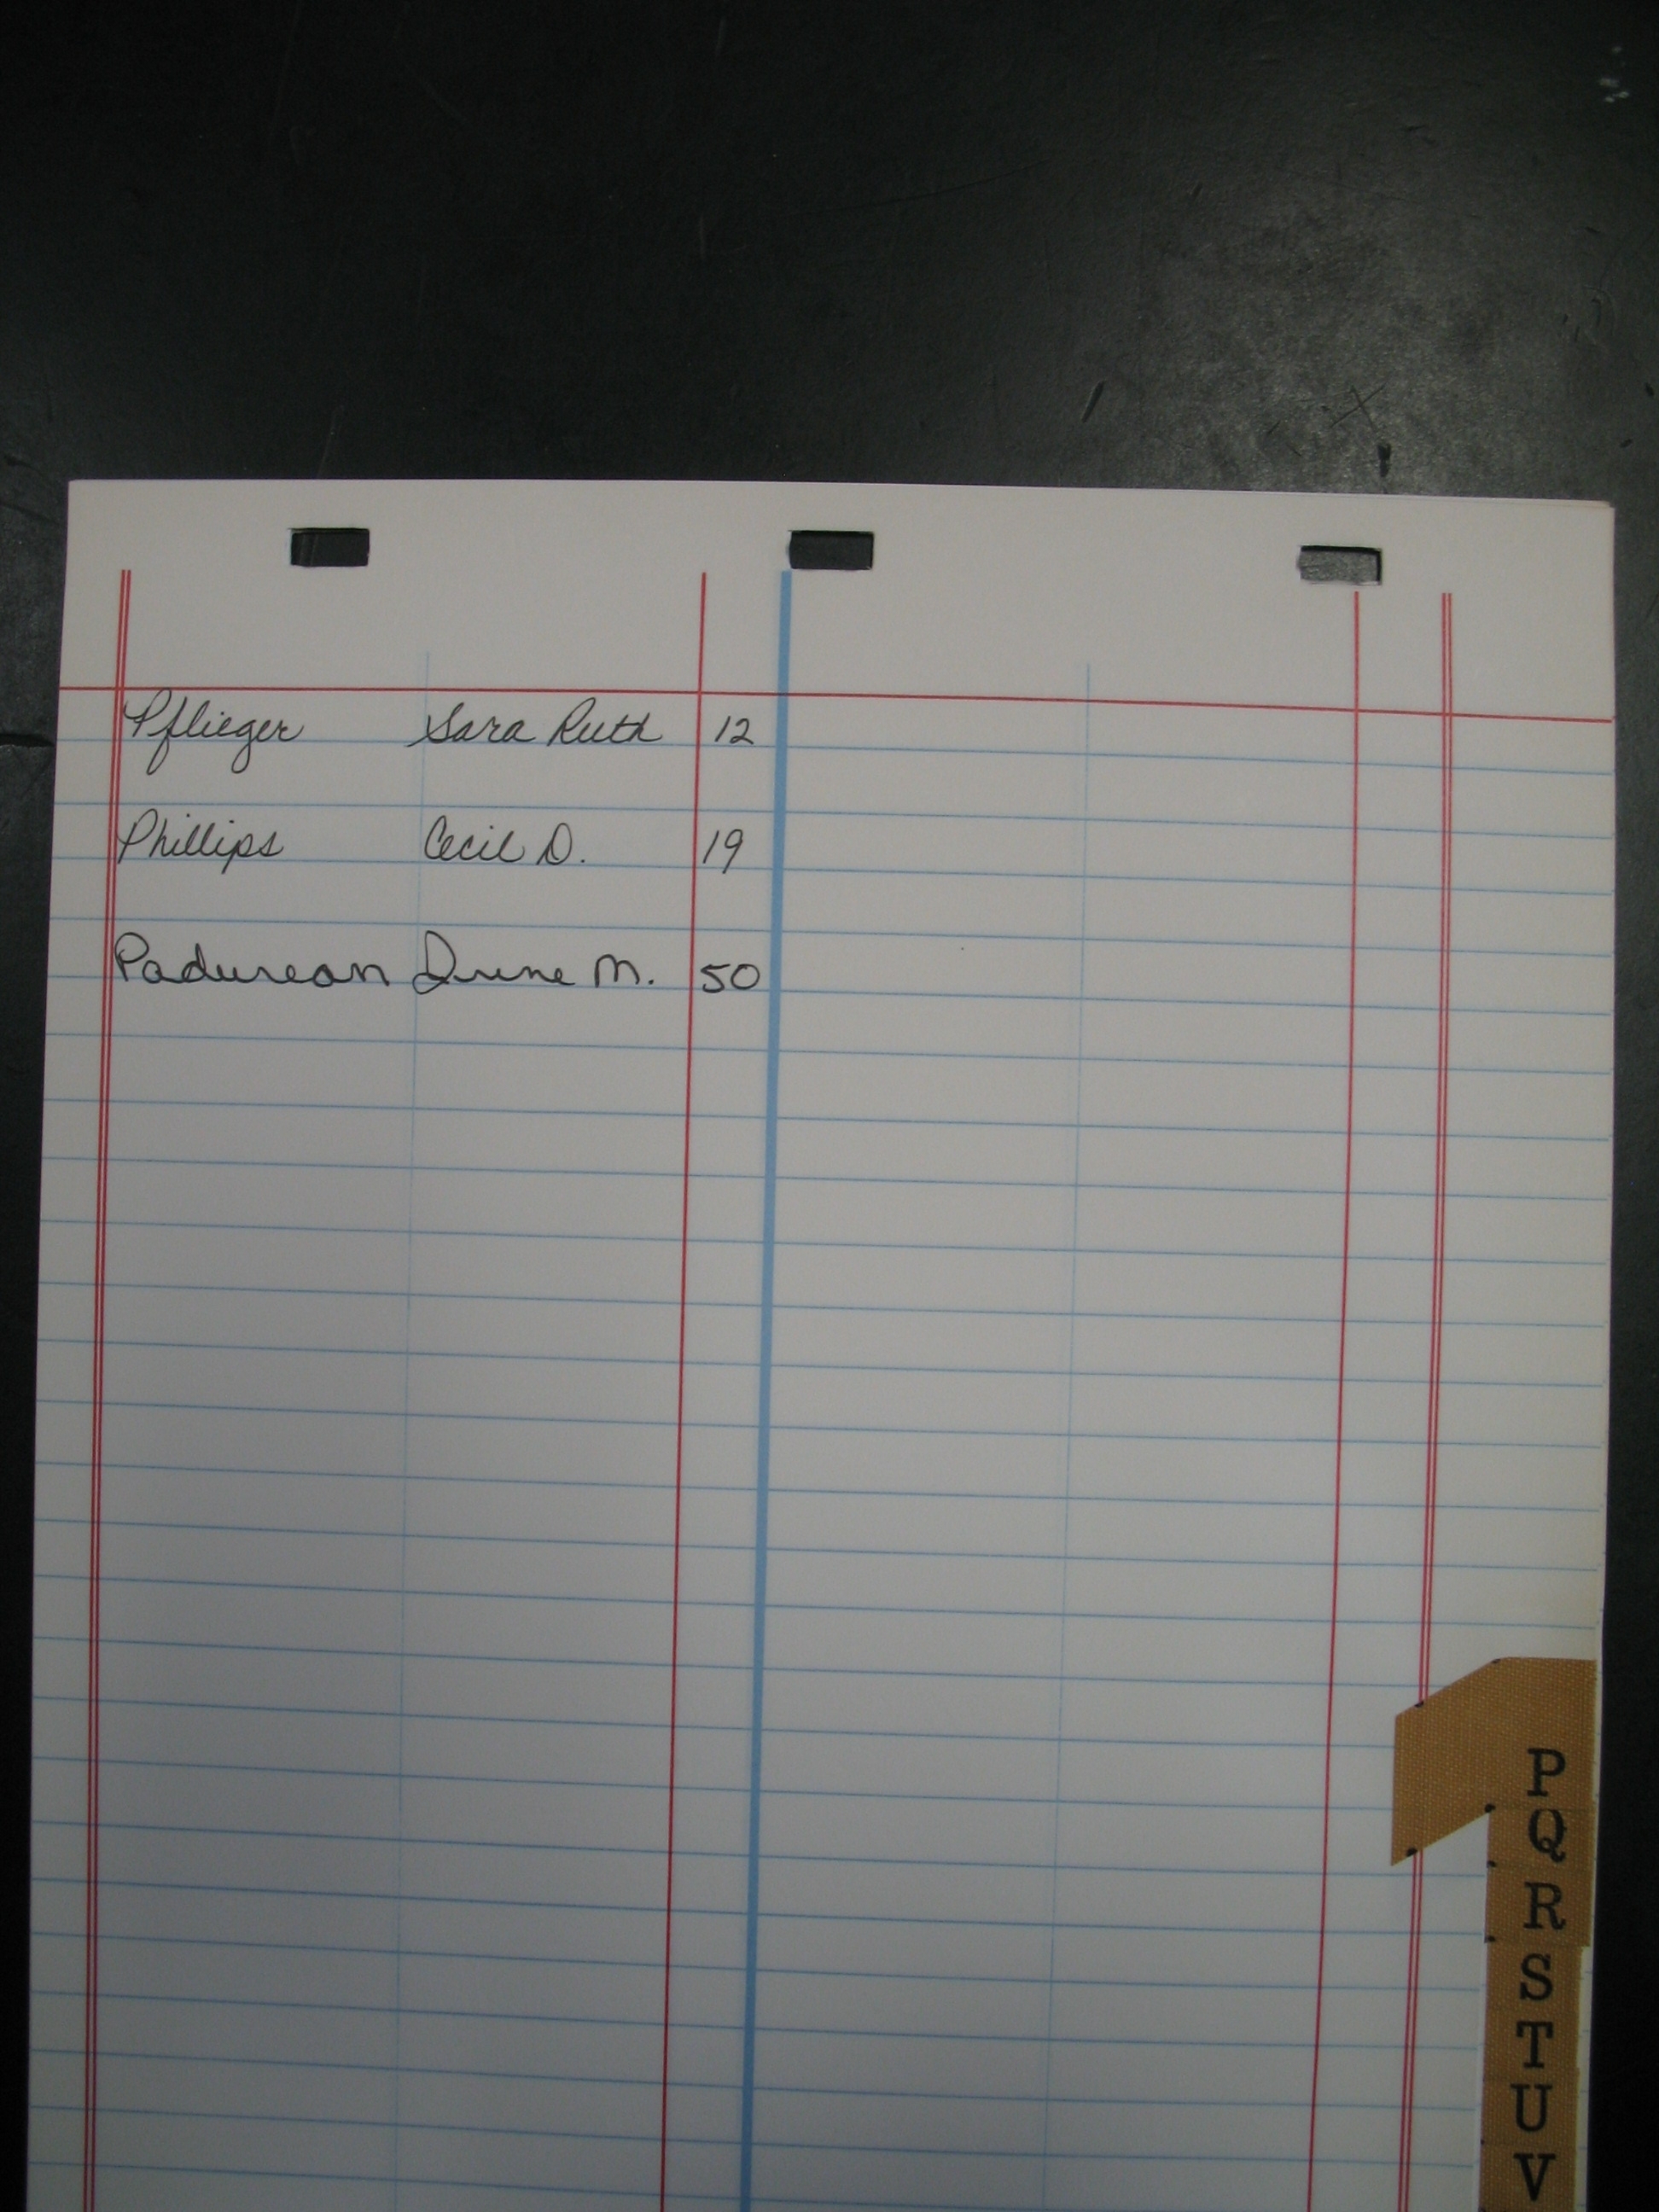 Pflieger Sara Ruth 12
Phillips Cecil D. 19
Padurean June M. 50
P
Q
R
S
T
U
V